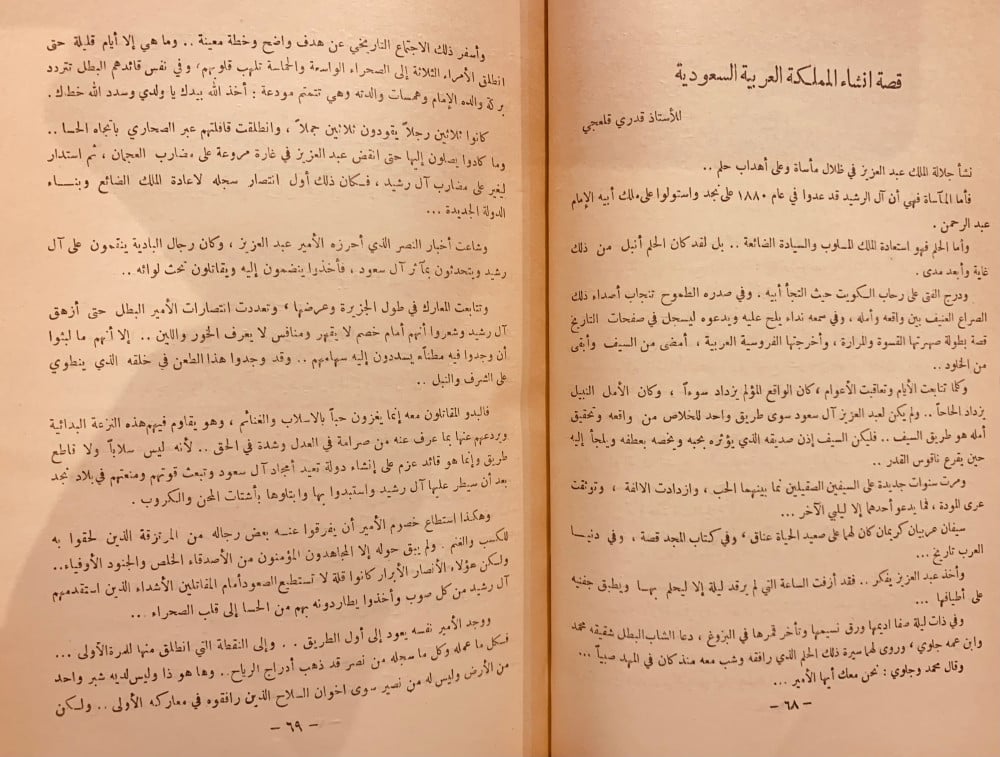 قصة انشاء المملكة العربية السعودية
للأستاذ قدري قلعجي
نشأ جلالة الملك عبد العزيز في ظلال مأساة وعلى أهداب حلم ..
فأما المأساة فهي أن آل الرشيد قد عدوا في عام ١٨٨٠ على نجد واستولوا على ملك أبيه الإمام
عبد الرحمن .
وأما الحلم فهو استعادة الملك المسلوب والسيادة الضائعة .. بل لقد كان الحلم أنبل من ذلك
غاية وأبعد مدى .
ودرج الفتى على رحاب الكويت حيث التجأ أبيه . وفي صدره الطموح تنجاب أصداء ذلك
الصراع العنيف بين واقعه وأمله ، وفي سمعه نداء يلح عليه ويدعوه ليسجل في صفحات التاريخ
قصة بطولة صهرتها القسوة والمرارة ، وأخرجتها الفروسية العربية ، أمضى من السيف وأبقى
من الخلود ..
وكما تتابعت الأيام وتعاقبت الأعوام ، كان الواقع المؤلم يزداد سوءاً ، وكان الأمل النبيل
يزداد الحاحاً .. ولم يكن لعبد العزيز آل سعود سوى طريق واحد للخلاص من واقعه وتحقيق
أمله هو طريق السيف .. فليكن السيف إذن صديقه الذي يؤثره بحبه ويخصه بعطفه ويلجأ إليه
حين يقرع ناقوس القدر ..
ومرت سنوات جديدة على السيفين الصقيلين نما بينهما الحب ، وازدادت الالفة ، وتوثقت
عرى المودة ، فما يدعو أحدهما إلا ليلبي الآخر ...
سيفان عربيان كريمان كان لهما على صعيد الحياة عناق ، وفي كتاب المجد قصة ، وفي دنيا
العرب تاريخ ...
وأخذ عبد العزيز يفكر .. فقد أزفت الساعة التي لم يرقد ليلة إلا ليحلم بها ويطبق جفنيه
على أطيافها ...
وفي ذات ليلة صفا اديمها ورق نسيمها وتأخر قمرها في البزوغ ، دعا الشاب البطل شقيقه محمد
وابن عمه جلوي ، وروى لهما سيرة ذلك الحلم الذي رافقه وشب معه منذ كان في المهد صبياً ...
وقال محمد وجلوي : نحن معك أيها الأمير ...
– ٦٨ –
وأسفر ذلك الاجتماع التاريخي عن هدف واضح وخطة معينة .. وما هي إلا أيام قليلة حتى
انطلق الأمراء الثلاثة إلى الصحراء الواسعة والحماسة تلهب قلوبهم ، وفي نفس قائدهم البطل تتردد
بركة والده الإمام وهمسات والدته وهي تتمتم مودعة : أخذ الله بيدك يا ولدي وسدد الله خطاك .
كانوا ثلاثين رجلاً يقودون ثلاثين جملاً ، وانطلقت قافلتهم عبر الصحاري باتجاه الحسا ..
وما كادوا يصلون إليها حتى انقض عبد العزيز في غارة مروعة على مضارب العجمان ، ثم استدار
ليغير على مضارب آل رشيد ، فكان ذلك أول انتصار سجله لاعادة الملك الضائع وبناء
الدولة الجديدة ...
وشاعت أخبار النصر الذي أحرزه الأمير عبد العزيز ، وكان رجال البادية ينقمون على آل
رشيد ويتحدثون بمآثر آل سعود ، فأخذوا ينضمون إليه ويقاتلون تحت لوائه ..
وتتابعت المعارك في طول الجزيرة وعرضها ، وتعددت انتصارات الأمير البطل حتى أزهق
آل رشيد وشعروا أنهم أمام خصم لا يقهر ومنافس لا يعرف الخور واللين .. إلا أنهم ما لبثوا
أن وجدوا فيه مطعناً يسددون إليه سهامهم .. وقد وجدوا هذا الطعن في خلقه الذي ينطوي
على الشرف والنبل ..
فالبدو المقاتلون معه إنما يغزون حباً بالاسلاب والغنائم ، وهو يقاوم فيهم هذه النزعة البدائية
ويردعهم عنها بما عرف عنه من صرامة في العدل وشدة في الحق .. لأنه ليس سلاباً ولا قاطع
طريق وإنما هو قائد عزم على إنشاء دولة تعيد أمجاد آل سعود وتبعث قوتهم ومنعتهم في بلاد نجد
بعد أن سيطر عليها آل رشيد واستبدوا بها وابتلوها بأشتات المحن والكروب .
وهكذا استطاع خصوم الأمير أن يفرقوا عنه بعض رجاله من المرتزقة الذين لحقوا به
للكسب والغنم . ولم يبق حوله إلا المجاهدون المؤمنون من الأصدقاء الخلص والجنود الأوفياء ..
ولكن هؤلاء الأنصار الأبرار كانوا قلة لا تستطيع الصعود أمام المقاتلين الأشداء الذين استقدمهم
آل رشيد من كل صوب وأخذوا يطاردونه بهم من الحسا إلى قلب الصحراء ...
ووجد الأمير نفسه يعود إلى أول الطريق .. وإلى النقطة التي انطلق منها للمرة الأولى ...
فكل ما عمله وكل ما سجله من نصر قد ذهب أدراج الرياح .. وها هو ذا وليس لديه شبر واحد
من الأرض وليس له من نصير سوى اخوان السلاح الذين رافقوه في معاركه الأولى .. ولكن
– ٦٩ –